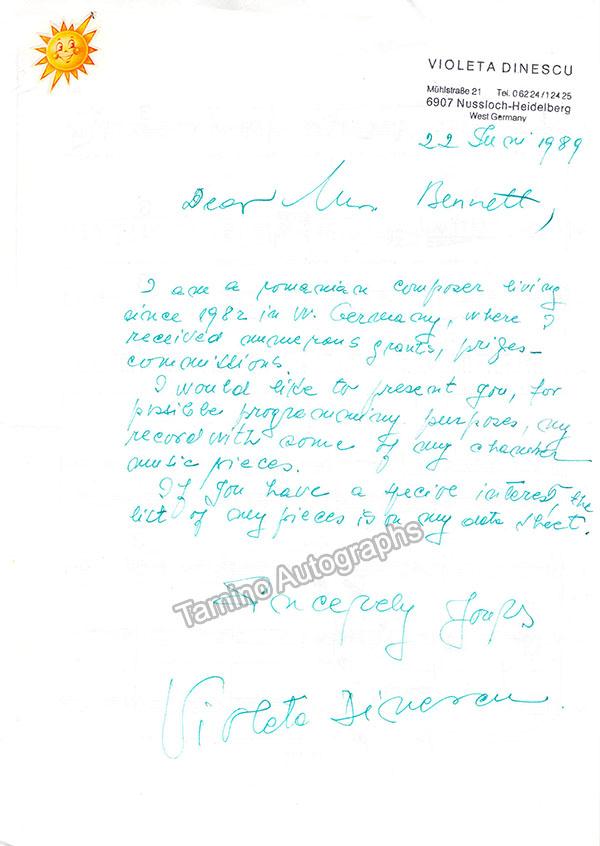 VIOLETA DINESCU
Mühlstraße 21 Tel. 0 62 24 / 1 24 25
6907 Nussloch-Heidelberg
West Germany
22 Juni 1989
Dear Mr. Bennett,
I am a romanian composer living
since 1982 in W. Germany, where I
received numerous grants, prizes-
commissions.
I would like to present you, for
possible programming purposes, my
record with some of my chamber
music pieces.
If you have a specive interest, the
list of my pieces is on my data sheet.
Sincerely yours
Violeta Dinescu.
Tamino Autographs